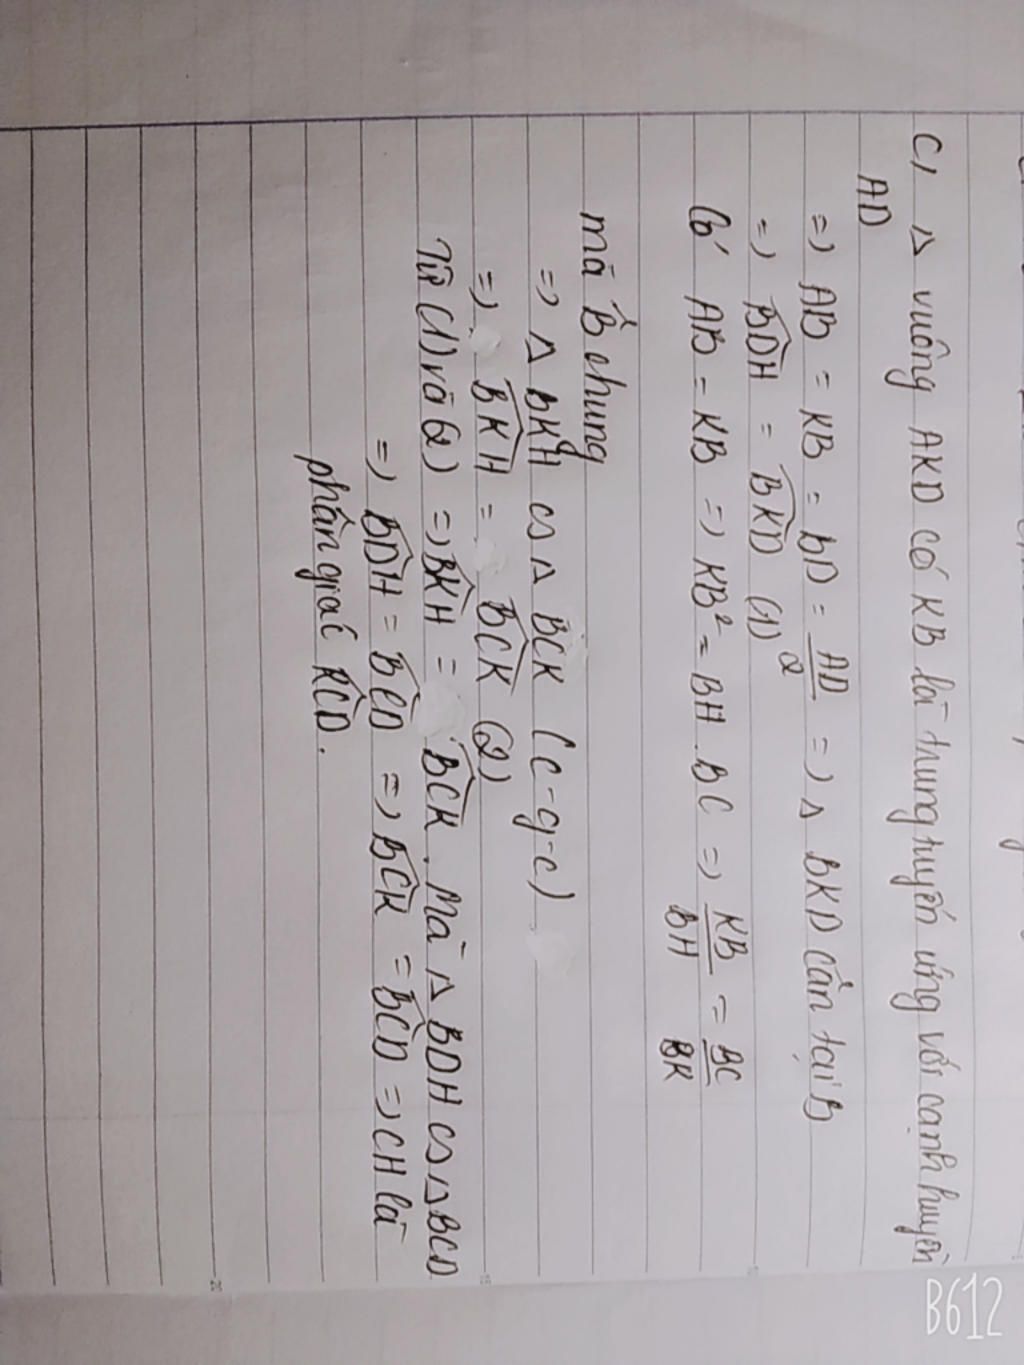 C, △ vuông AKD có KB là trung tuyến ứng với cạnh huyền
AD
=> AB = KB = BD = AD/2 => △ BKD cân tại B
=> BDH = BKD (1)
Có AB = KB => KB² = BH.BC => KB/BH = BC/BK
mà B chung
=> △ BKH ∽ △ BCK (c-g-c)
=> BKH = BCK (2)
Từ (1) và (2) => BKH = BCK. Mà △ BDH ∽ △ BCD
=> BDH = BCD => BCK = BCD => CH là
phân giác KCD.
B612